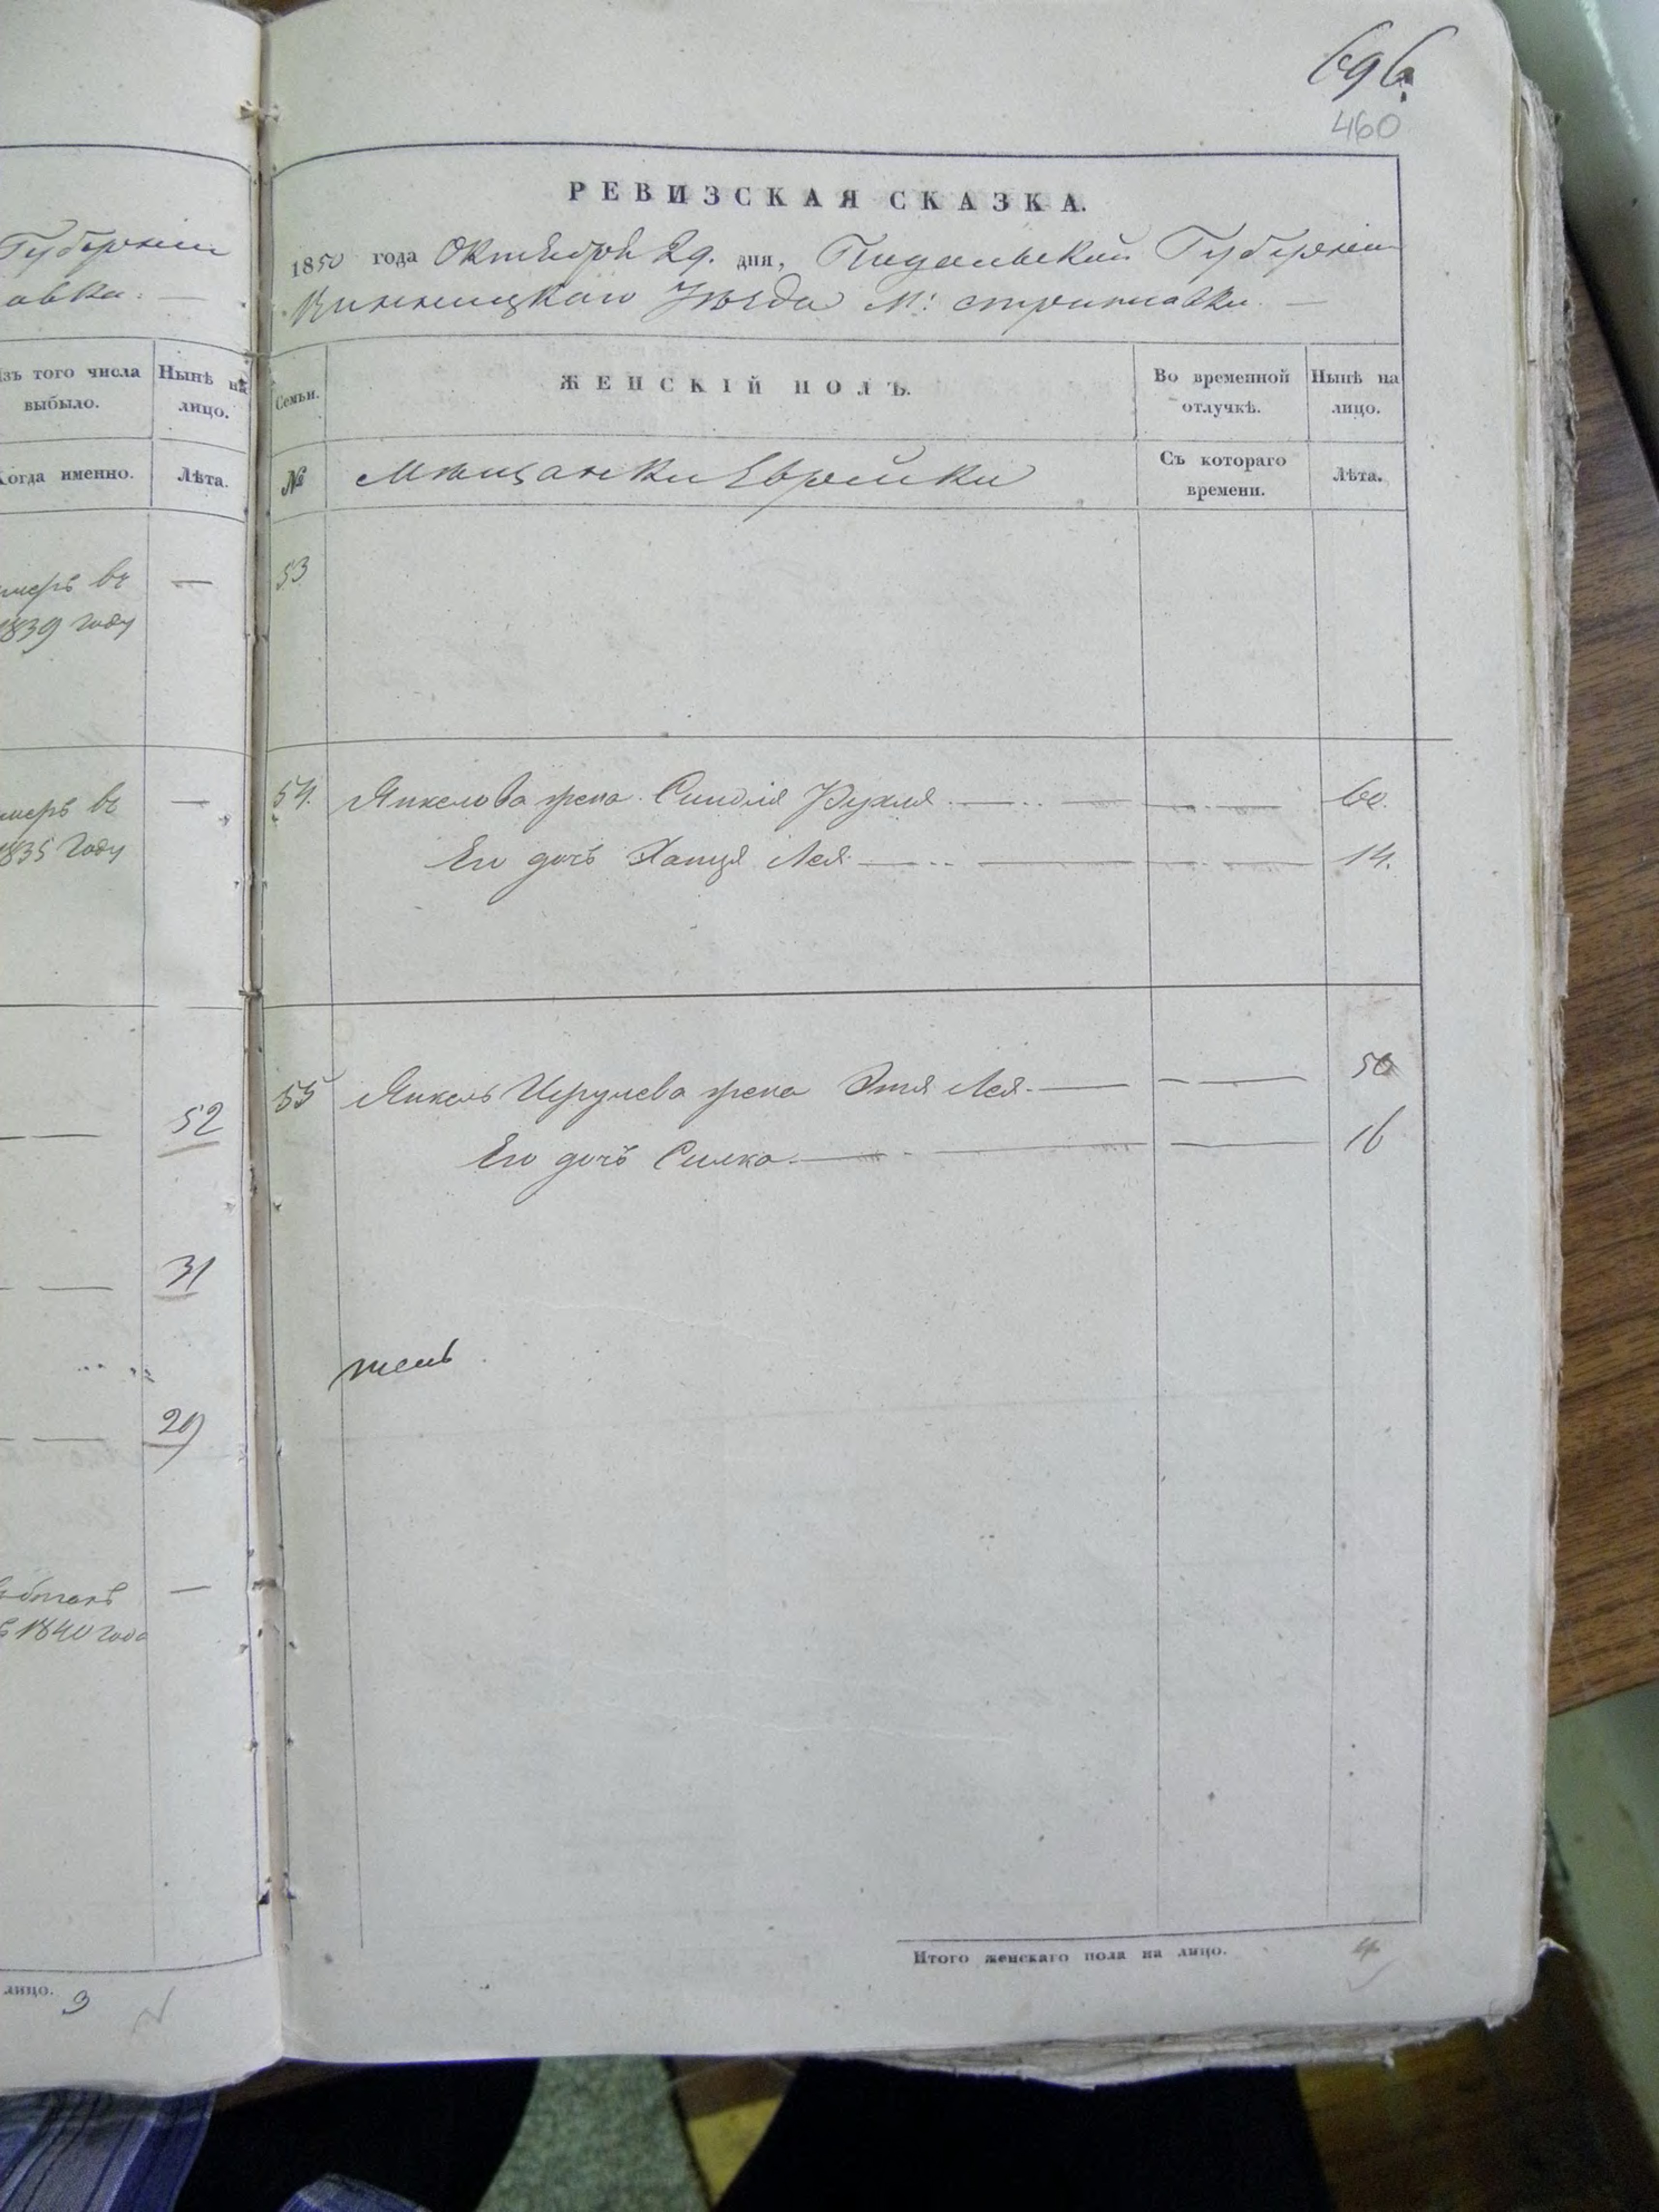 696.
460
Губерніи
авка.
Изъ того числа
выбыло.
Нынѣ на
лицо.
Когда именно.
Лѣта.
умеръ въ
1839 году
—
умеръ въ
1835 году
—
52
31
29
съ 1840 года
—
лицо. 3
РЕВИЗСКАЯ СКАЗКА.
1850 года Октября 29. дня, Подольской Губерніи
Винницкаго Уѣзда М: Стрижавки. —
Семьи.
ЖЕНСКІЙ ПОЛЪ.
Во временной
отлучкѣ.
Нынѣ на
лицо.
№
Мѣщанки Еврейки
Съ котораго
времени.
Лѣта.
53
54. Янкелова жена Рухля — — 60.
Его дочь Ханця Лея — — 14.
55 Янкель Шрулева жена Этя Лея — — 50
Его дочь Сишка — — 16
Итого женскаго пола на лицо. 4